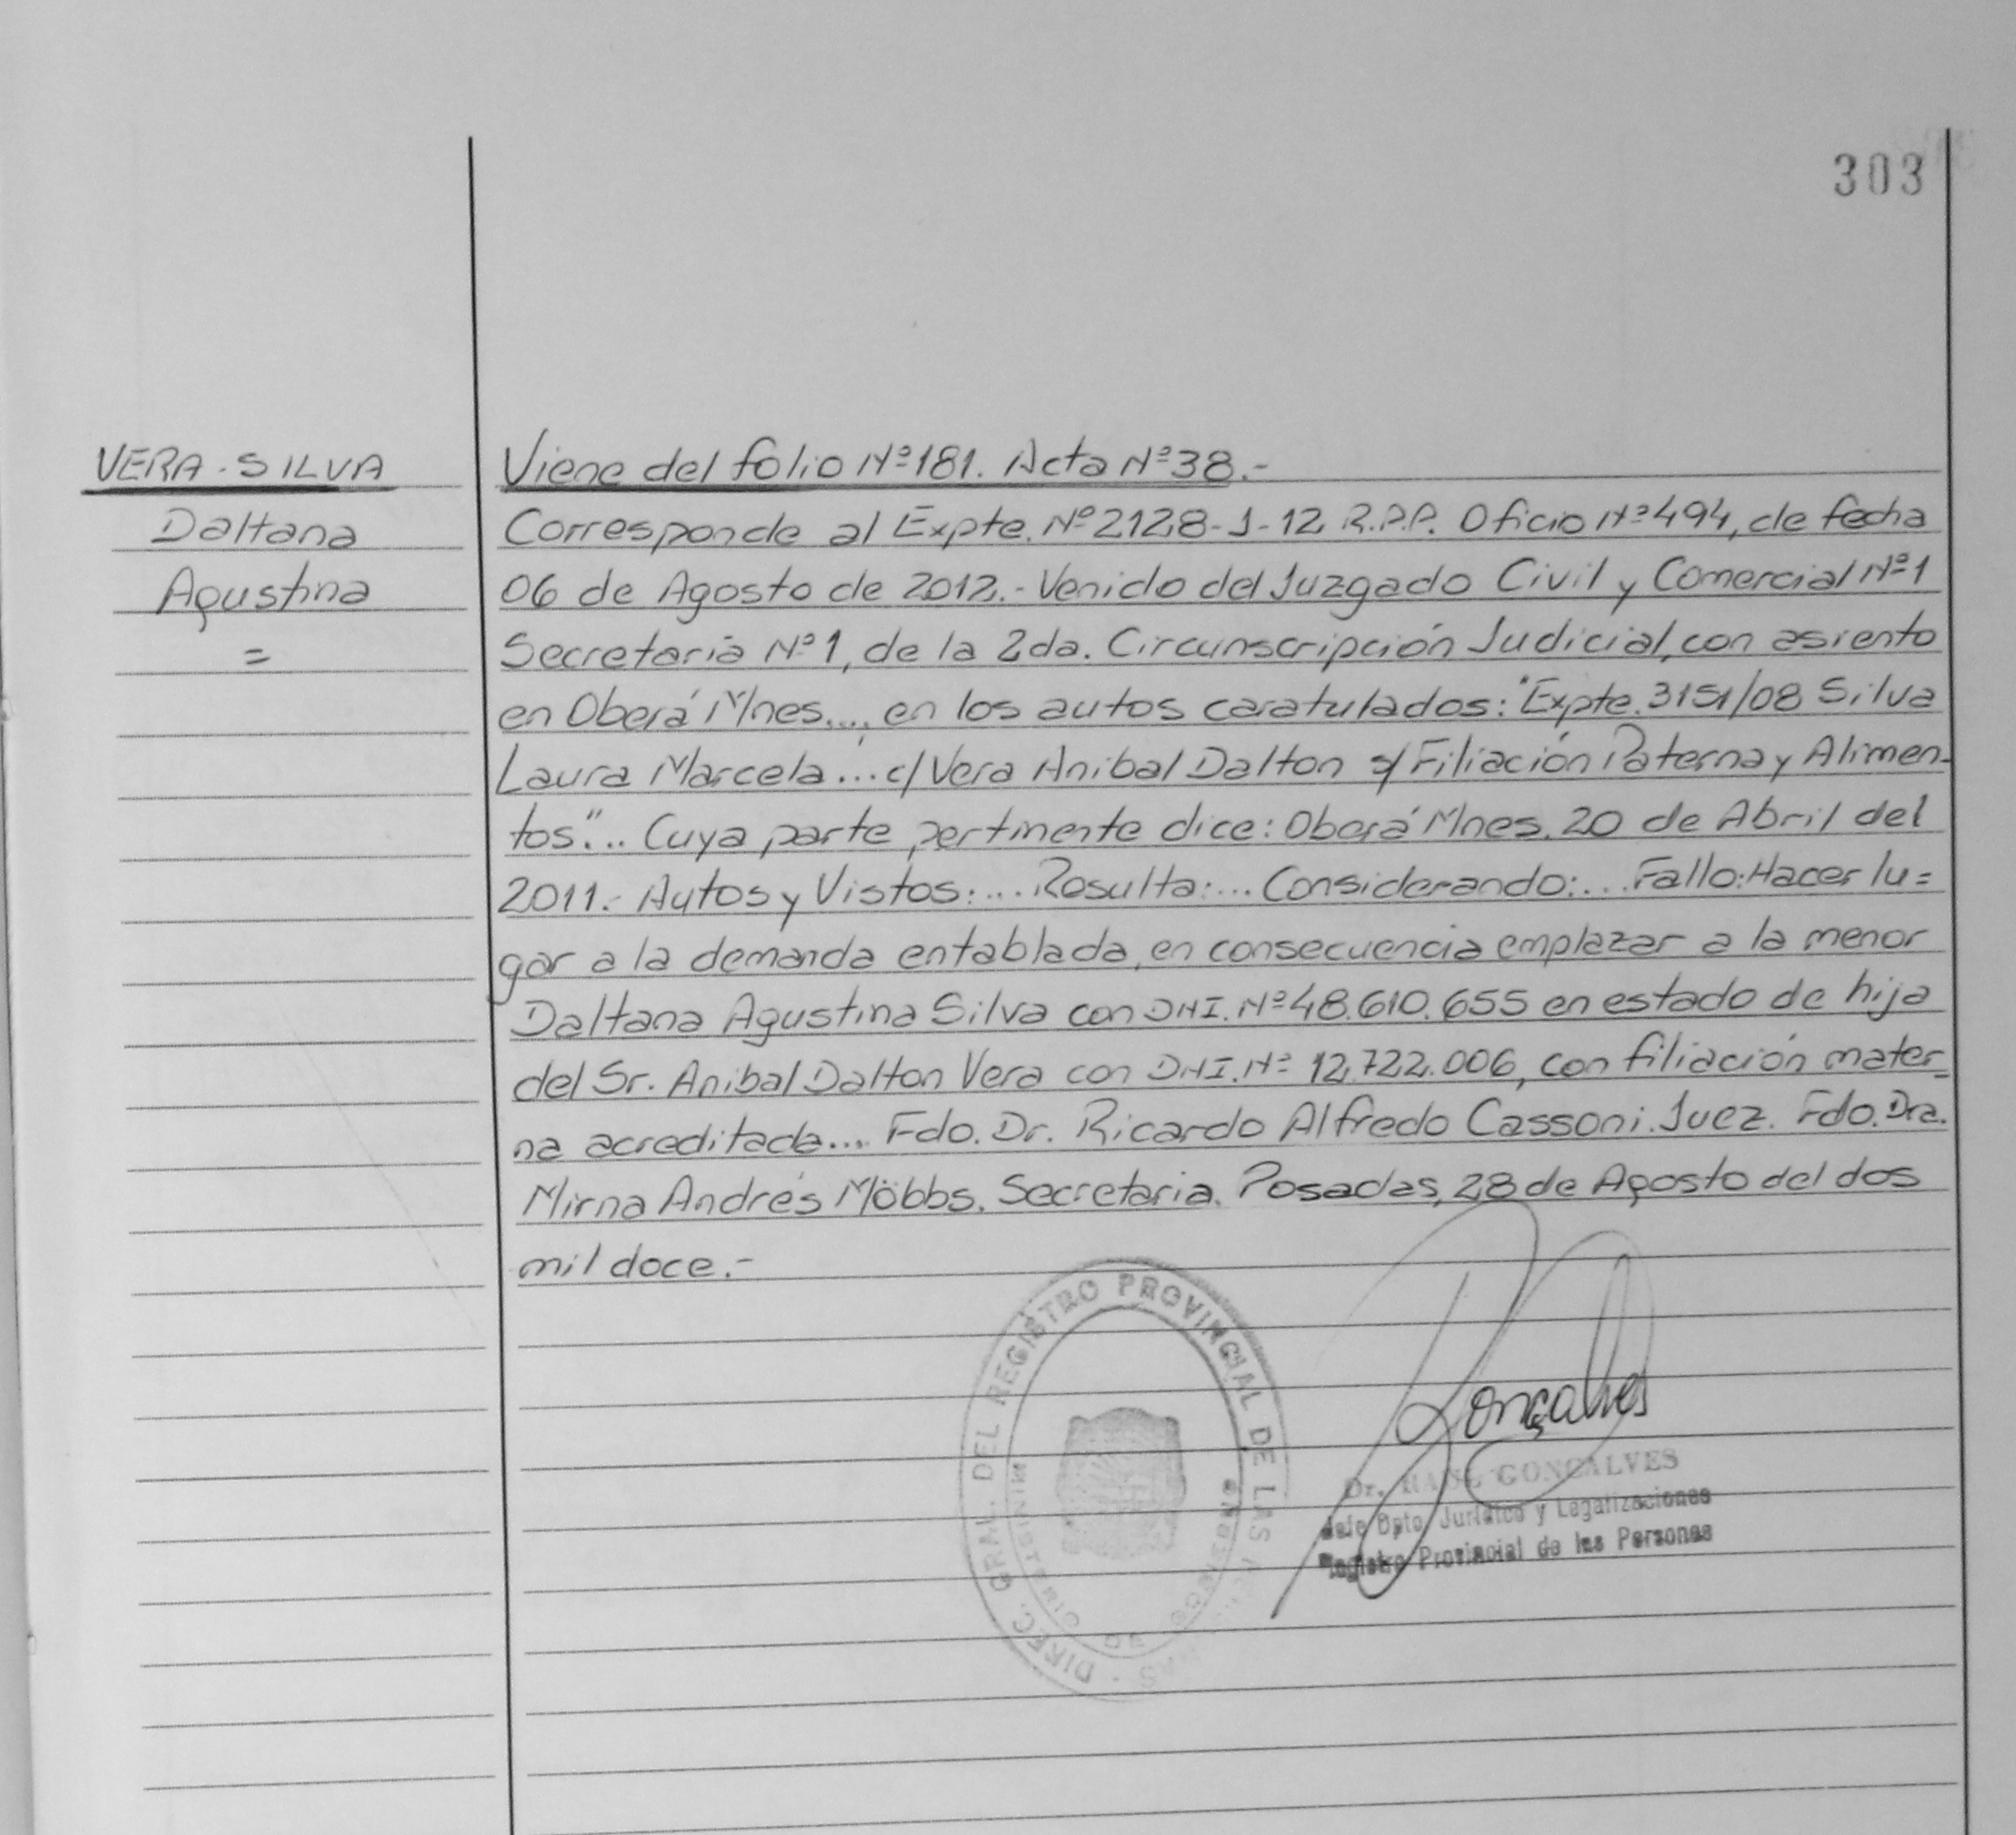 303
VERA-SILVA
Daltana
Agustina
=
Viene del folio Nº181. Acta Nº38.-
Corresponde al Expte. Nº2128-J-12 R.P.P. Oficio Nº494, de fecha
06 de Agosto de 2012.- Venido del Juzgado Civil y Comercial Nº1
Secretaria Nº1, de la 2da. Circunscripción Judicial, con asiento
en Oberá Mnes..., en los autos caratulados: "Expte. 3151/08 Silva
Laura Marcela... c/ Vera Anibal Dalton s/ Filiación Paterna y Alimen-
tos."... Cuya parte pertinente dice: Oberá Mnes. 20 de Abril del
2011.- Autos y Vistos:... Resulta:... Considerando:... Fallo: Hacer lu=
gar a la demanda entablada, en consecuencia emplazar a la menor
Daltana Agustina Silva con DNI. Nº48.610.655 en estado de hija
del Sr. Anibal Dalton Vera con DNI. Nº 12.722.006, con filiación mater_
na acreditada... Fdo. Dr. Ricardo Alfredo Cassoni. Juez. Fdo. Dra.
Mirna Andrés Möbbs. Secretaria. Posadas, 28 de Agosto del dos
mil doce.-
DIREC. GRAL. DEL REGISTRO PROVINCIAL DE LAS
MINISTERIO DE GOBIERNO
Gonçalves
Dr. RAUL GONCALVES
Jefe Dpto. Jurídico y Legalizaciones
Registro Provincial de las Personas